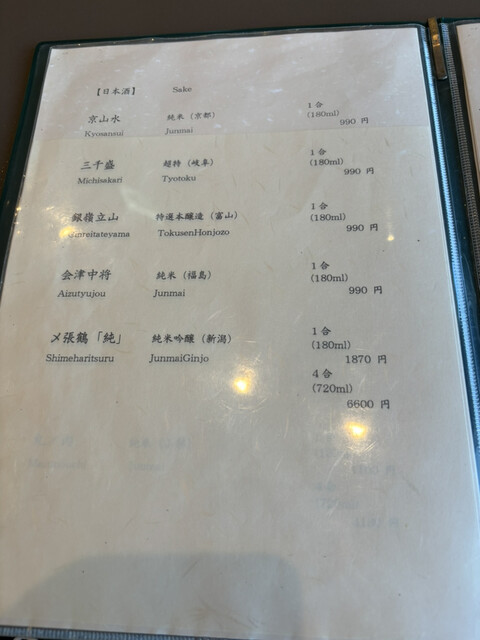 【日本酒】 Sake
京山水 純米（京都） 1合
(180ml)
Kyosansui Junmai 990 円
三千盛 超特（岐阜） 1合
(180ml)
Michisakari Tyotoku 990 円
銀嶺立山 特選本醸造（富山） 1合
(180ml)
TokusenHonjozo 990 円
会津中将 純米（福島） 1合
(180ml)
Aizutyujou Junmai 990 円
〆張鶴「純」 純米吟醸（新潟） 1合
(180ml)
Shimeharitsuru JunmaiGinjo 1870 円
4合
(720ml)
6600 円